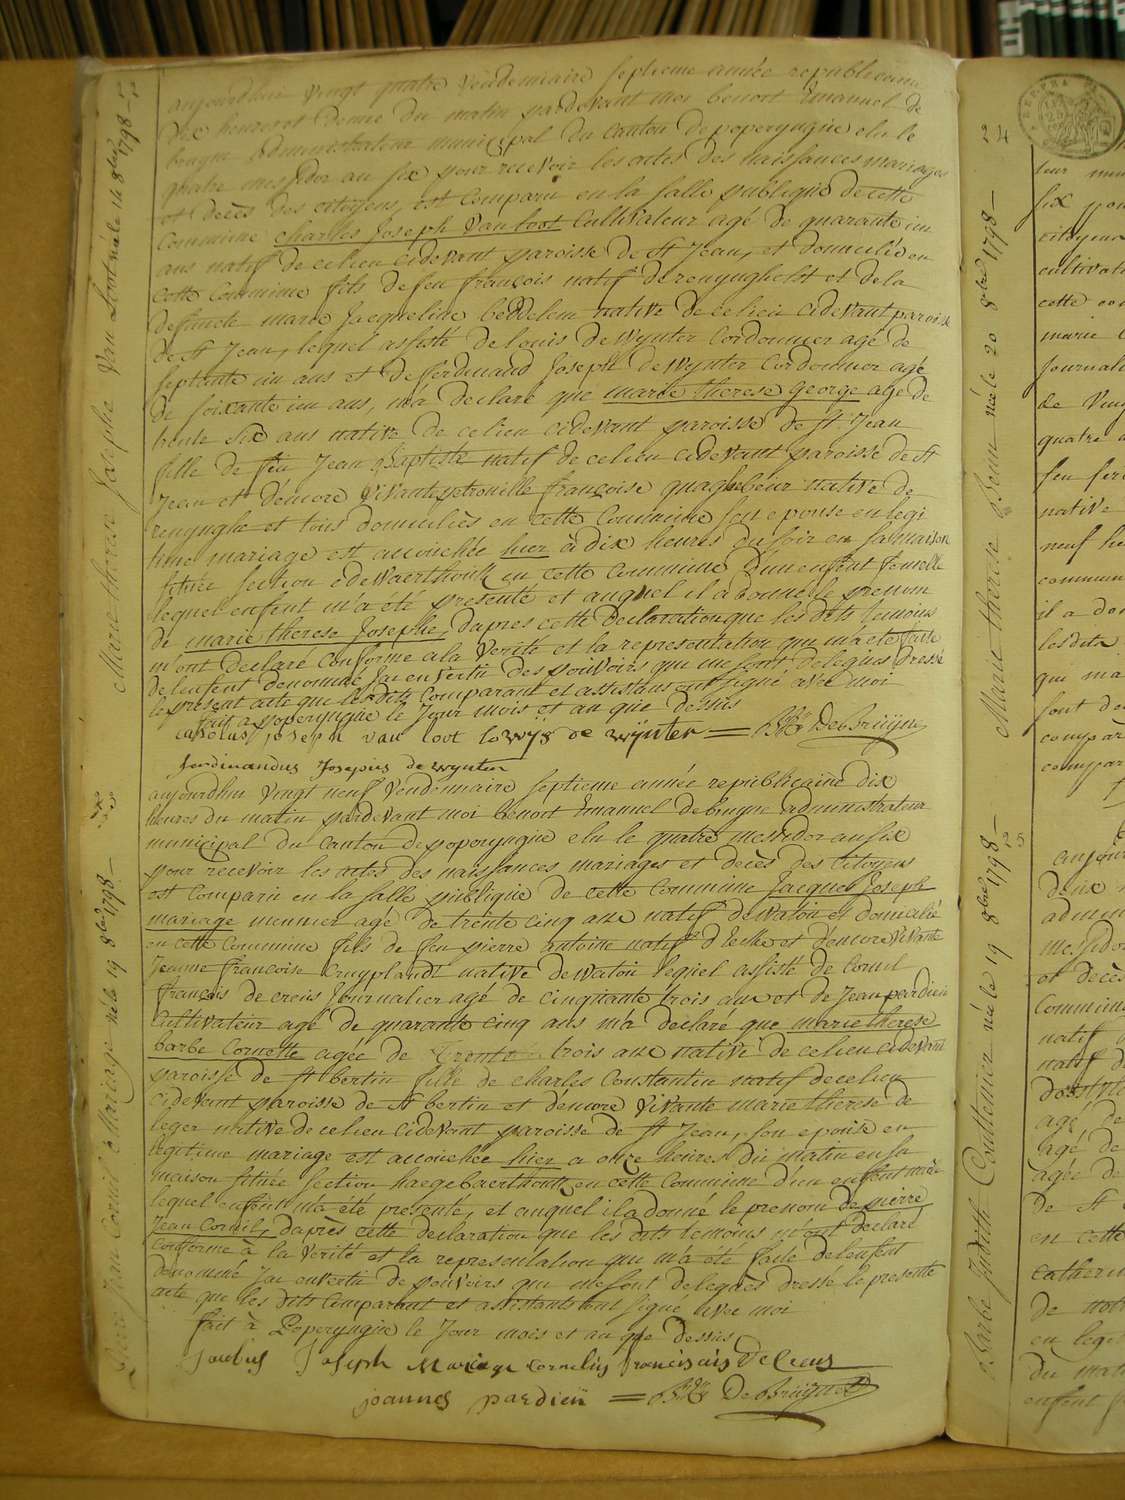 22
Marie therese Josephe Van Loot née le 14 8bre 1798 —
aujourdhui vingt quatre vendemiaire septieme année republicaine
dix heures et demie du matin pardevant moi benoit Emanuel de
bruyne administrateur municipal du Canton de poperyngue elu le
quatre messidor an six pour recevoir les actes des naissances mariages
et decès des citoyens, est comparu en la salle publique de cette
Commune charles Joseph Van loot Cultivateur agé de quarante un
ans natif de ce lieu cidevant paroisse de St Jean, et domicilié en
cette Commune fils de feu françois natif de renyngelst et de la
deffuncte marie Jacqueline beddelem native de ce lieu cidevant paroisse
de St Jean, lequel assisté de louis de Wynter Cordonnier agé de
septante un ans et de ferdinand Joseph de Wynter Cordonnier agé
de soixante un ans, m'a declaré que marie therese george agé de
trente six ans native de ce lieu cidevant paroisse de St Jean
fille de feu Jean Baptiste natif de ce lieu cidevant paroisse de St
Jean et d'encore vivante petronille françoise quaghebeur native de
renynghe et tous domiciliés en cette Commune son epouse en legi
time mariage est accouchée hier à dix heures du soir en sa maison
située section edewaerthouk en cette commune d'un enfant femelle
lequel enfant m'a été presenté et auquel il a donné le prenom
de marie therese Josephe, dapres cette declaration que les dits temoins
m'ont declaré conforme a la verité et la representation qui m'a été faite
de l'enfant denommé J'ai en vertu des pouvoirs qui me sont delegués dressé
le present acte que les dits Comparant et assistans ont signé avec moi
fait a poperyngue le Jour mois et an que dessus
Carolus Joseph van loot lowys de wynter = B: E: DeBruyne
ferdinandus Josepus de wynter
23
Pierre Jean Cornil Mariage né le 19 8bre 1798 —
aujourdhui vingt neuf Vendemiaire septieme année republicaine dix
heures du matin pardevant moi benoit Emanuel debruyne administrateur
municipal du Canton de poperyngue elu le quatre messidor an six
pour recevoir les actes des naissances mariages et decès des Citoyens
est comparu en la salle publique de cette Commune Jacques Joseph
mariage meunier agé de trente cinq ans natif de Watou et domicilié
en cette Commune fils de feu pierre antoine natif d'Ecke et d'encore vivante
Jeanne françoise Cruyplandt native de watou lequel assisté de Cornil
françois de creus Journalier agé de cinquante trois ans et de Jean pardieu
Cultivateur agé de quarante cinq ans m'a declaré que marie therese
barbe Cornette agée de trente trois ans native de ce lieu cidevant
paroisse de st bertin fille de charles Constantin natif de ce lieu
cidevant paroisse de St bertin et d'encore vivante marie therese de
leger native de ce lieu cidevant paroisse de St Jean, son epouse en
legitime mariage est accouchée hier a onze heures du matin en sa
maison située section haegebaerthouk en cette Commune d'un enfant mâle
lequel enfant m'a été presenté, et auquel il a donné le prenom de pierre
Jean Cornil, daprès cette declaration que les dits temoins m'ont declaré
conforme à la verité et la representation qui m'a été faite de l'enfant
denommé J'ai en vertu de pouvoirs qui me sont delegués dressé le presente
acte que les dits Comparant et assistants ont signé avec moi
fait à Poperyngue le Jour mois et an que dessus
Jacobus Joseph Mariage Cornelis francisais DeCreus
joannes pardieu = B: E: DeBruyne
24
Marie therese née le 20 8bre 1798 —
leur muni
six pour
citoyens
cultivate
cette com
marie
journali
de Ving
quatre a
feu fer
native
neuf he
commun
il a don
les dits
qui m'a
sont de
compar
compar
25
Barbe Judith Couttenier née le 19 8bre 1798 —
aujour
deux
admin
messido
et decès
Commun
natif
natif d
agé de
agé de
agée de
de St
en cette
Catherin
de notr
en legit
du mat
enfant f